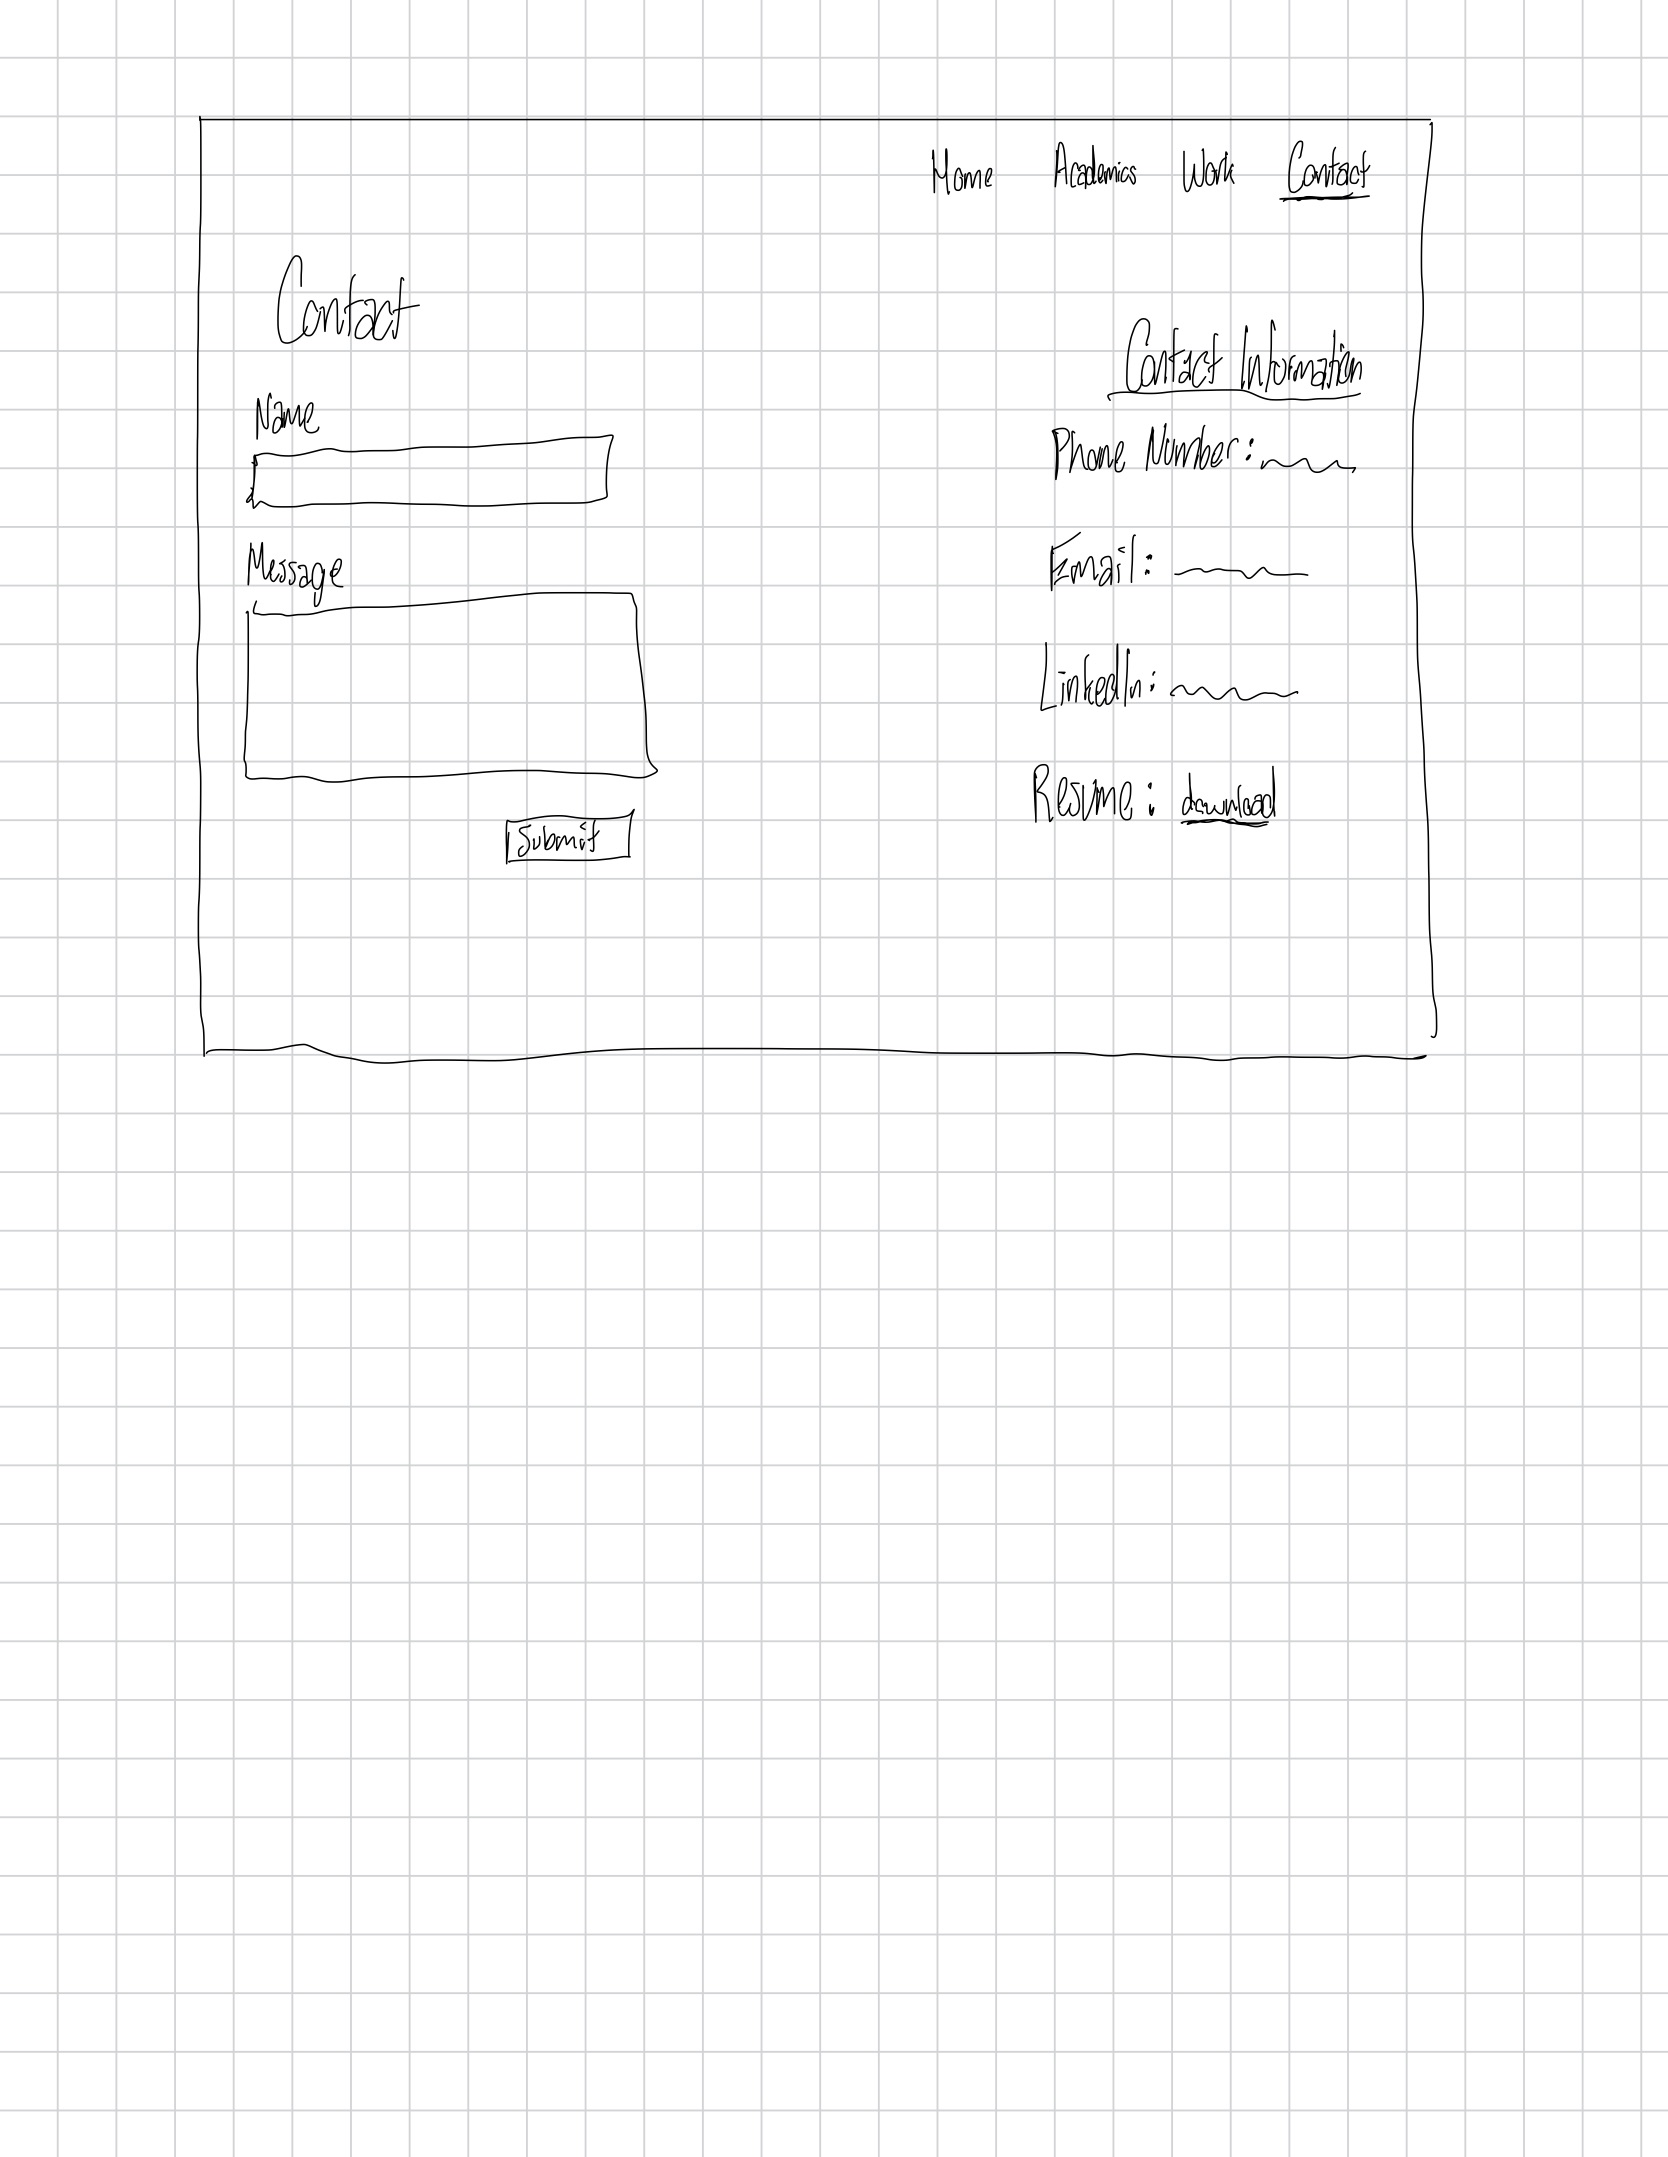 Home Academics Work Contact
Contact
Name
Message
Submit
Contact Information
Phone Number:
Email:
LinkedIn:
Resume: download